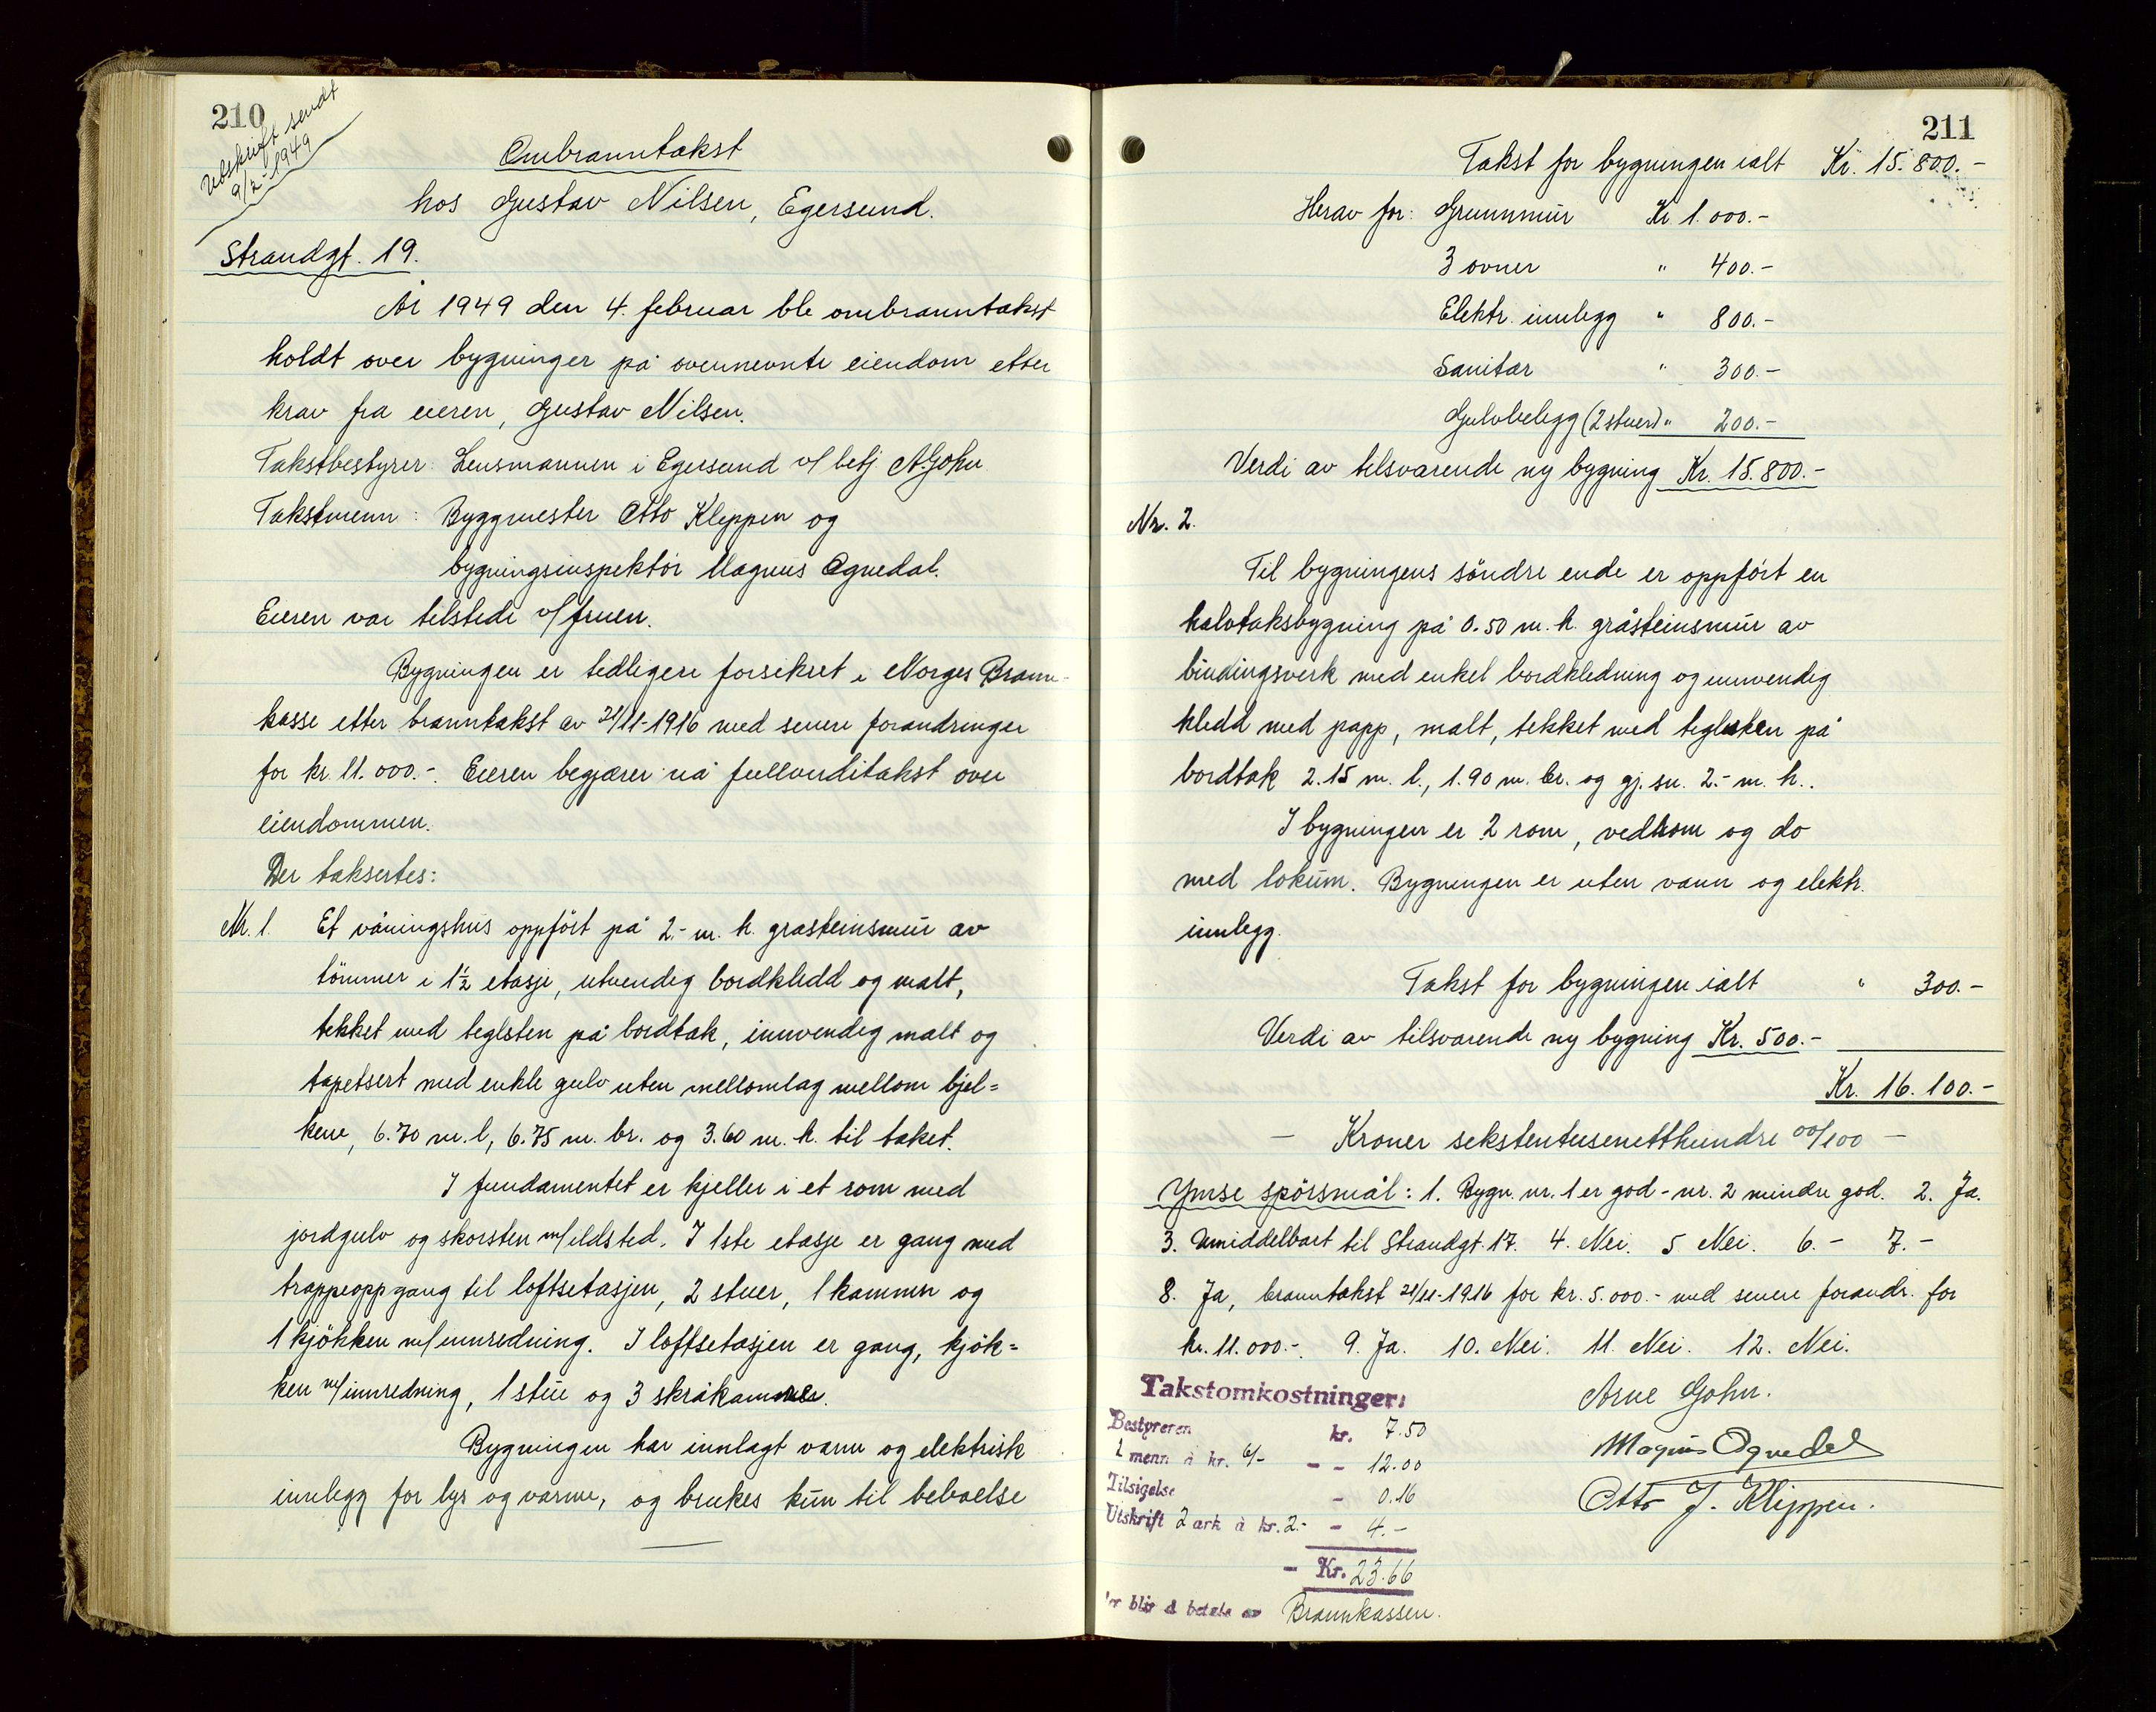 210
Utskrift sendt
9/2-1949
Ombranntakst
hos Gustav Nilsen, Egersund.
Strandgt. 19.
År 1949 den 4. februar ble ombranntakst
holdt over bygninger på ovennevnte eiendom etter
krav fra eieren, Gustav Nilsen.
Takstbestyrer: Lensmannen i Egersund v/ betj. A. Gohn
Takstmenn: Byggmester Otto Kleppen og
bygningsinspektör Magnus Ognedal.
Eieren var tilstede v/fruen.
Bygningen er tidligere forsikret i Norges Brann-
kasse etter branntakst av 21/11-1916 med senere forandringer
for kr. 11.000.-. Eieren begjærer nå fullverditakst over
eiendommen.
Der taksertes:
Nr. 1. Et våningshus oppfört på 2.- m. h. gråsteinsmur av
tömmer i 1½ etasje, utvendig bordkledd og malt,
tekket med teglsten på bordtak, innvendig malt og
tapetsert med enkle gulv uten mellomlag mellom bjel=
kene, 6.70 m. l, 6.75 m. br. og 3.60 m. h. til taket.
I fundamentet er kjeller i et rom med
jordgulv og skorsten m/ildsted. I 1ste etasje er gang med
trappeoppgang til loftsetasjen, 2 stuer, 1 kammer og
1 kjökken m/innredning. I loftsetasjen er gang, kjök=
ken m/innredning, 1 stue og 3 skråkammer.
Bygningen har innlagt vann og elektrisk
innlegg for lys og varme, og brukes kun til beboelse
211
Takst for bygningen ialt Kr. 15.800.-
Herav for: Grunnmur Kr. 1.000.-
3 ovner " 400.-
Elektr. innlegg " 800.-
Sanitær " 300.-
Gulvbelegg (2 stuer) " 200.-
Verdi av tilsvarende ny bygning Kr. 15.800.-
Nr. 2.
Til bygningens söndre ende er oppfört en
halvtaksbygning på 0.50 m. h. gråsteinsmur av
bindingsverk med enkel bordkledning og innvendig
kledd med papp, malt, tekket med teglsten på
bordtak 2.15 m. l., 1.90 m. br. og gj. sn. 2.- m. h..
I bygningen er 2 rom, vedrom og do
med lokum. Bygningen er uten vann og elektr.
innlegg.
Takst for bygningen ialt " 300.-
Verdi av tilsvarende ny bygning Kr. 500.-
Kr. 16.100.-
- Kroner sekstentusenetthundre 00/100 -
Ymse spörsmål: 1. Bygn. nr. 1 er god - nr. 2 mindre god. 2. Ja.
3. Umiddelbart til Strandgt. 17. 4. Nei. 5 Nei. 6. - 7. -
8. Ja, branntakst 21/11-1916 for kr. 5.000.- med senere forandr. for
kr. 11.000.-. 9. Ja. 10. Nei. 11. Nei. 12. Nei.
Takstomkostninger:
Bestyreren kr. 7.50
2 menn à kr. 6/- - - 12.00
Tilsigelse - 0.16
Utskrift 2 ark à kr. 2.- - 4.-
- Kr. 23.66
er blir å betale av Brannkassen.
Arne Gohn.
Magnus Ognedal
Otto J. Kleppen.